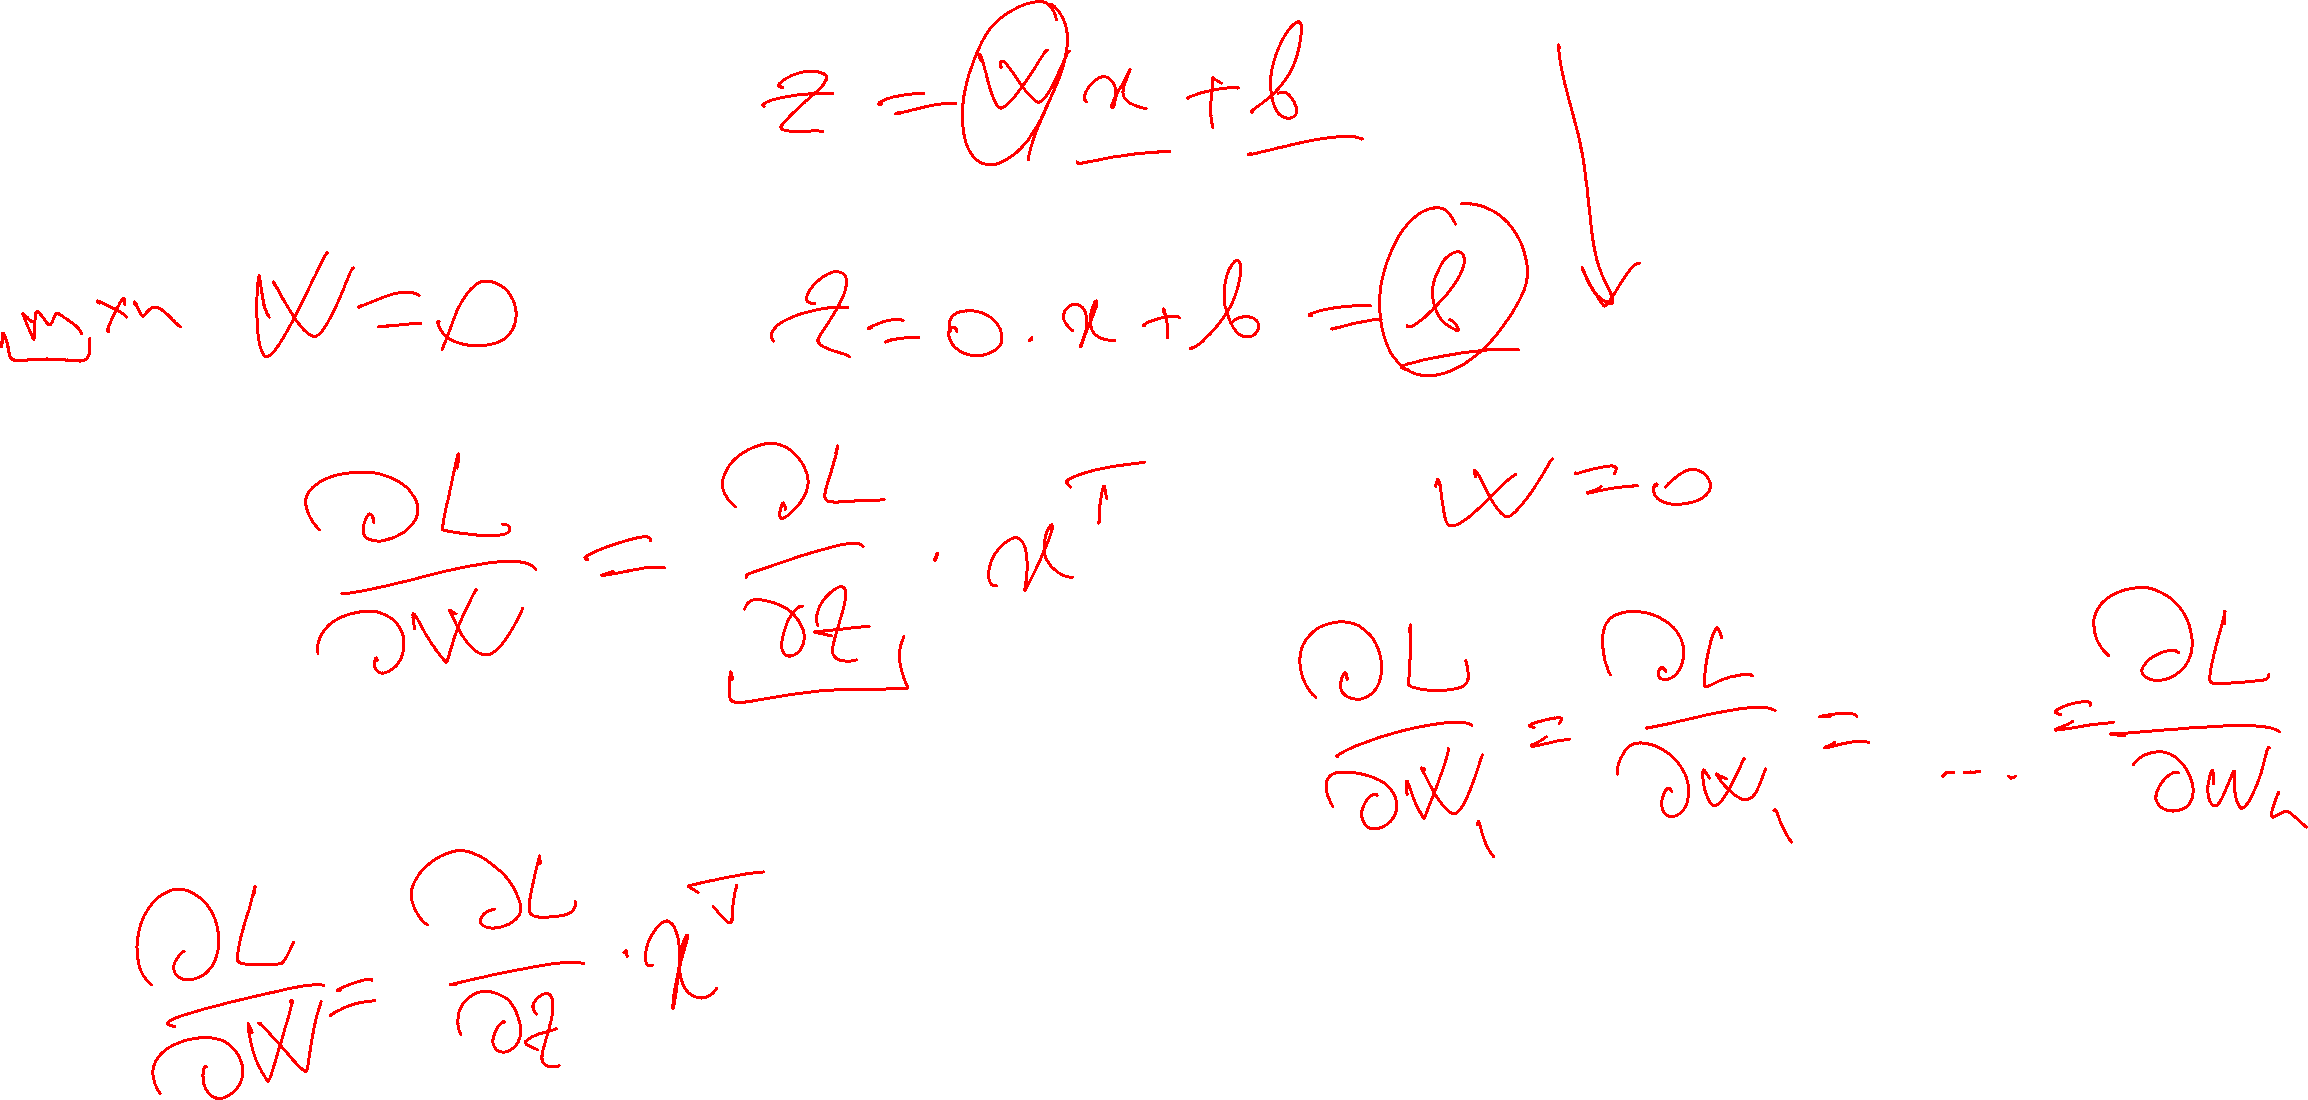 z = Wx + b
m×n W = 0 z = 0.x + b = b
∂L/∂W = ∂L/∂z . x^T W = 0
∂L/∂W₁ = ∂L/∂W₁ = ... = ∂L/∂Wn
∂L/∂W = ∂L/∂z . x^T